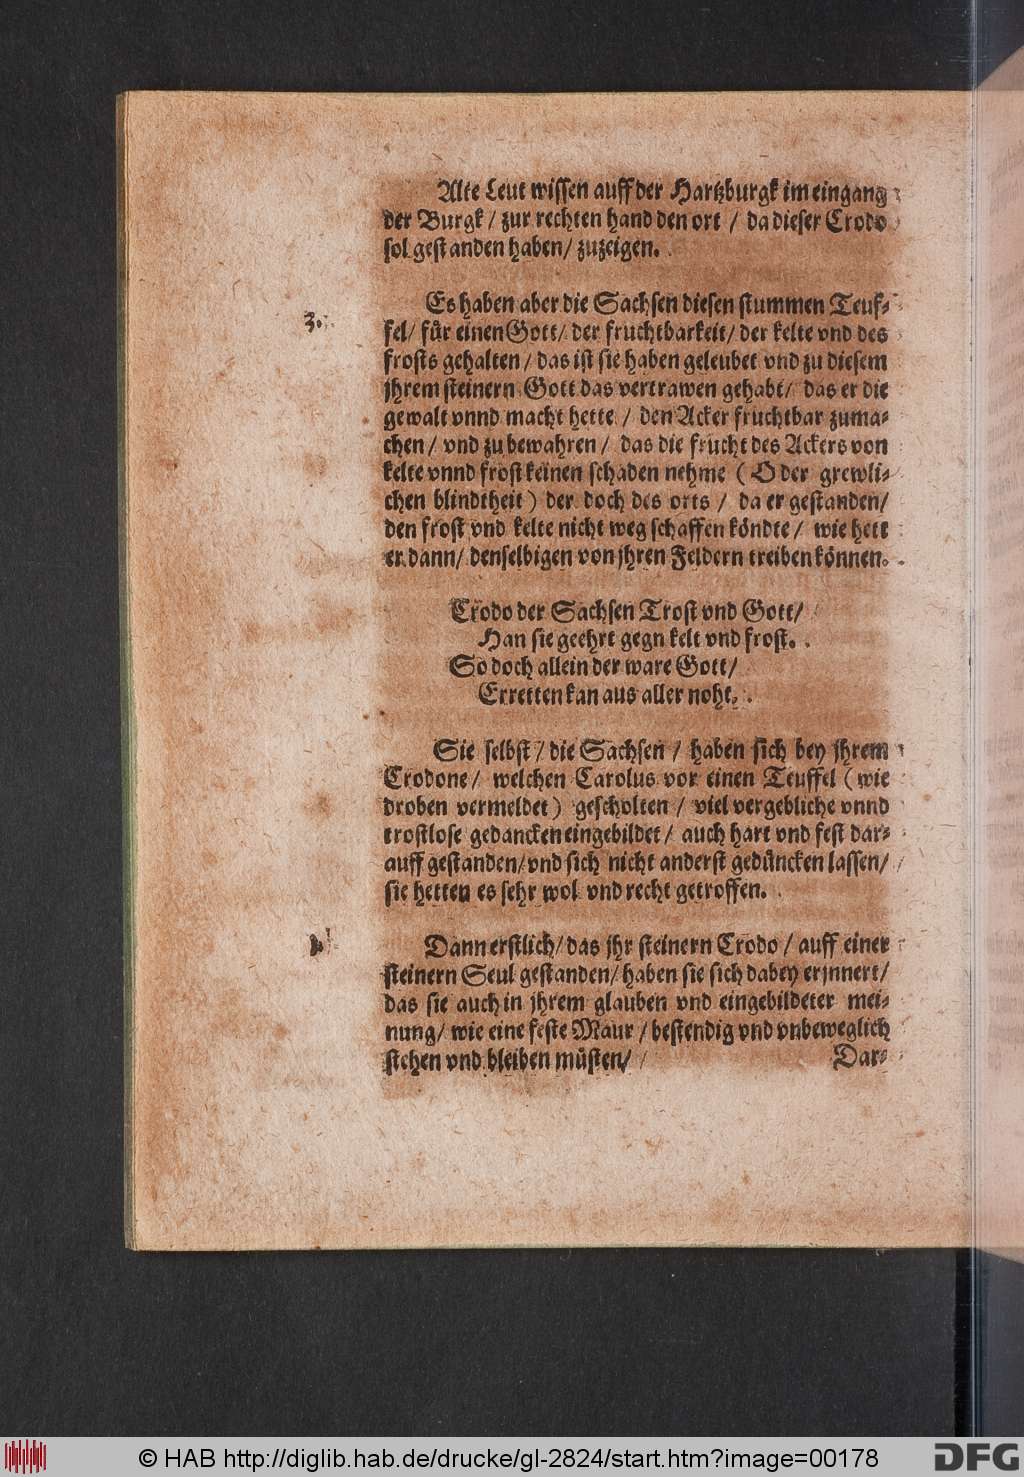 Alte Leut wissen auff der Hartzburgk im eingang
der Burgk / zur rechten hand den ort / da dieser Crodo
sol gestanden haben / zuzeigen.
3.
Es haben aber die Sachsen diesen stummen Teuf-
fel / für einen Gott / der fruchtbarkeit / der kelte vnd des
frosts gehalten / das ist sie haben geleubet vnd zu diesem
jhrem steinern Gott das vertrawen gehabt / das er die
gewalt vnnd macht hette / den Acker fruchtbar zuma-
chen / vnd zu bewahren / das die frucht des Ackers von
kelte vnnd frost keinen schaden nehme ( O der grewli-
chen blindtheit ) der doch des orts / da er gestanden /
den frost vnd kelte nicht weg schaffen köndte / wie hett
er dann / denselbigen von jhren Feldern treiben können.
Crodo der Sachsen Trost vnd Gott /
Han sie geehrt gegn kelt vnd frost.
So doch allein der ware Gott /
Erretten kan aus aller noht.
Sie selbst / die Sachsen / haben sich bey jhrem
Crodone / welchen Carolus vor einen Teuffel ( wie
droben vermeldet ) gescholten / viel vergebliche vnnd
trostlose gedancken eingebildet / auch hart vnd fest dar-
auff gestanden / vnd sich nicht anderst gedüncken lassen /
sie hetten es sehr wol vnd recht getroffen.
Dann erstlich / das jhr steinern Crodo / auff einer
steinern Seul gestanden / haben sie sich dabey erjnnert /
das sie auch in jhrem glauben vnd eingebildeter mei-
nung / wie eine feste Maur / bestendig vnd vnbeweglich
stehen vnd bleiben müsten /
Dar-
© HAB http://diglib.hab.de/drucke/gl-2824/start.htm?image=00178
DFG